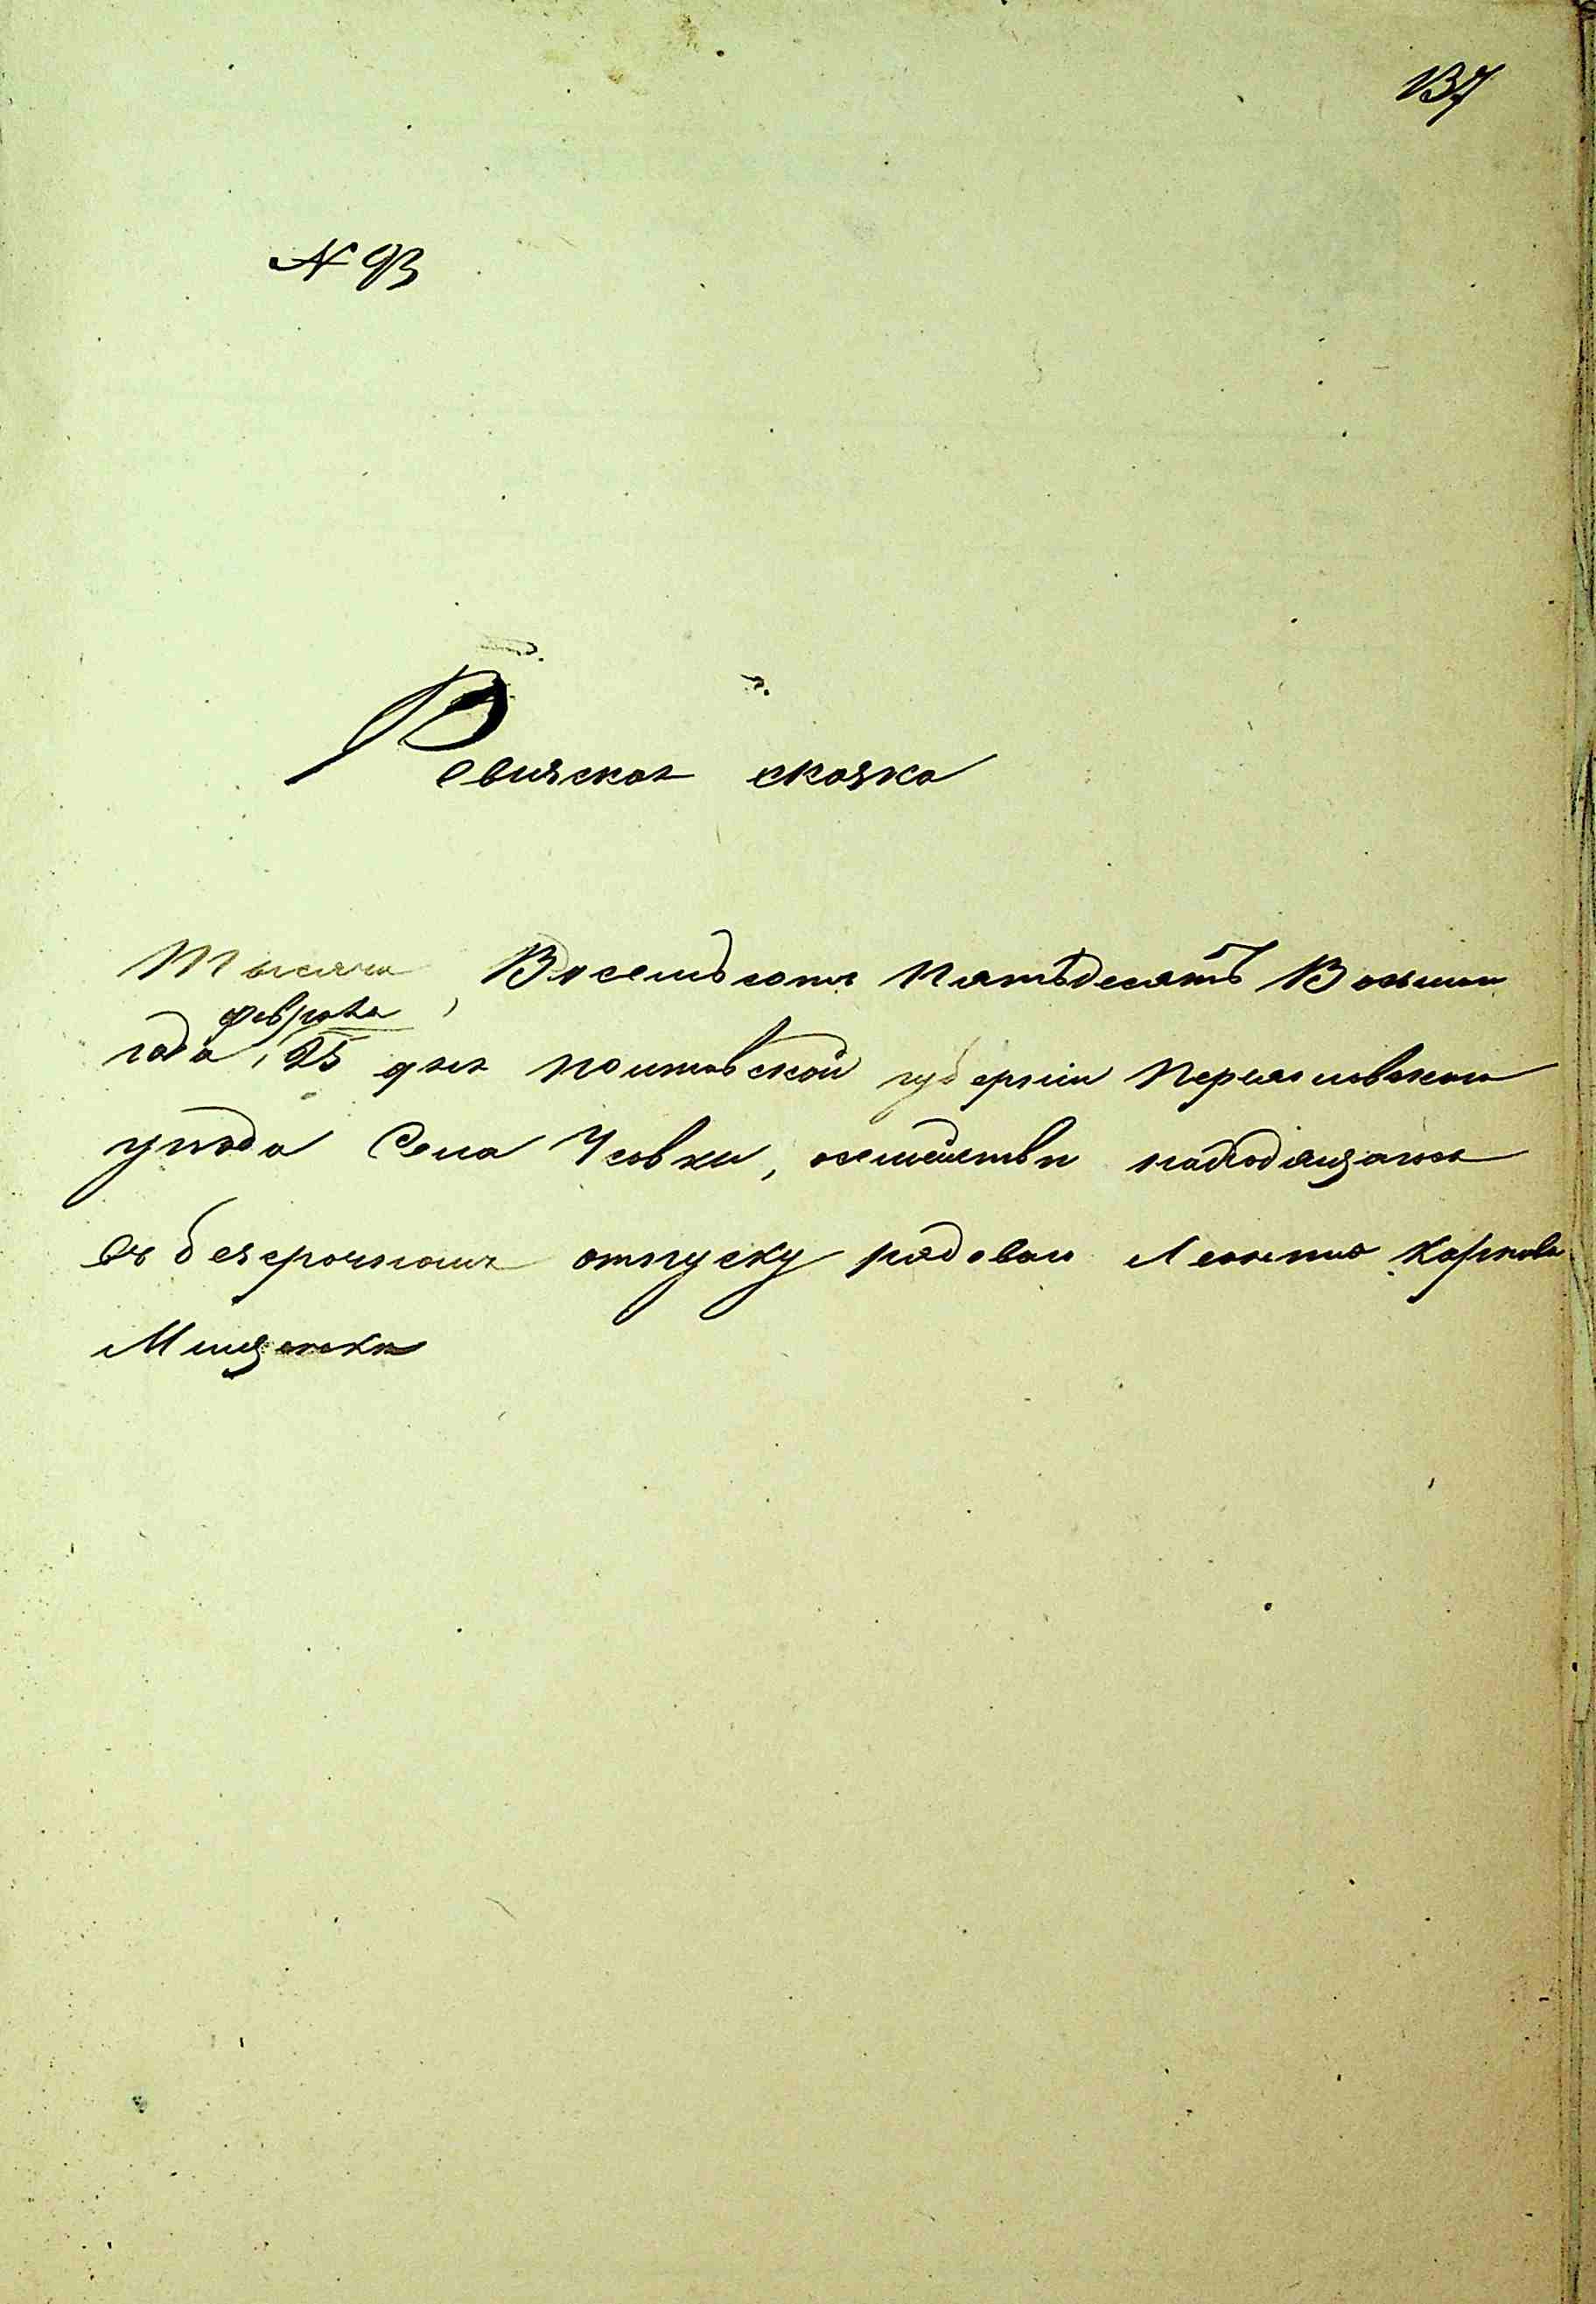 137
N 93
Ревизская сказка
Тысяча Восемьсотъ Пятьдесятъ Восьмаго
февраля
года, 25 дня Полтавской губерніи Переяславскаго
уезда Села Усовки, о семействе находящагося
въ безсрочномъ отпуску рядоваго Леонтия Карпова
Мищенка